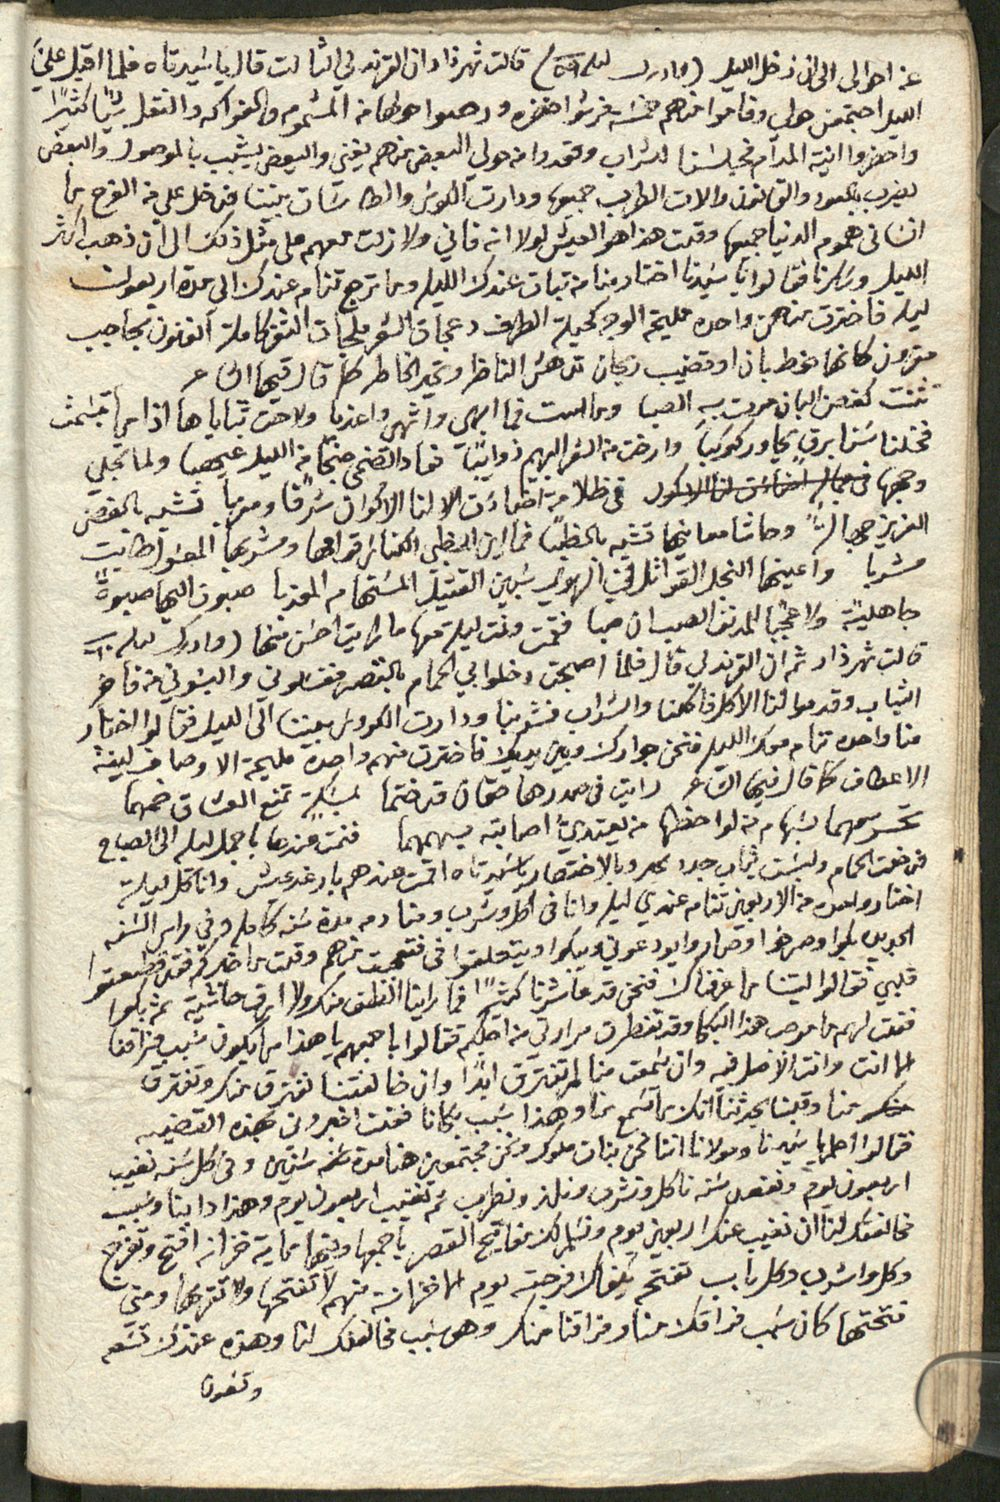 عن احوالي الى ان دخل الليل (وادرك ليله ٥٩) قالت شهرذاد ان القرندلي الثالث قال يا سيدتاه فلما اقبل عليّ
الليل اجتمعن حولي وقاموا منهم خمسه فرشوا حضره ورصوا حولها من المشموم والفواكه والنقل شيا كثيرًا
واحضروا انية المدام فجلسنا للشراب وقعدوا من حولي البعض منهم يغني والبعض يشبب بالموصول والبعض
يضرب بالعود والقانون والات الطرب جميعها ودارت الكوس والطاسات بيننا فدخل علي من الفرح ما
انساني هموم الدنيا جميعها وقلت هذا هو العيش لولا انه فاني ولا زلت معهم على مثل ذلك الى ان ذهب اكثر
الليل وسكرنا فقالوا يا سيدنا اختار منا من تبات عندك الليله وما ترجع تنام عندك الى مدة اربعون
ليله فاخترت منهن واحده مليحة الوجه كحيلة الطرف دعجاة الشعر فلجاة الثغر كاملة الفنون بحاجب
مقرون كانها خوط بان او قضيب ريحان تدهش الناظر وتحير الخاطر كما قال فيها الشاعر
تثنت كغصن البان مرت به الصبا وماست فما ابهى واشهى واعذبا ولاحت ثناياها اذا ما تبسمت
فخلنا سنا برق يجاور كوكبا وارخت من الشعر البهيم ذوايبًا فعاد الضحى جنحًا من الليل غيهبا ولما تجلي
وجهها في ظلامه اضاءت لنا الاكوان شرقًا ومغربا تشبه بالغصن
العزيز جهالة وحاشا معانيها تشبه بالظبا فما اين للظبي الكناس قوامها ومشربها المعسول طابت
مشربا واعينها النجل القواتل في الهوى سبين القتيل المستهام المعذبا صبوت اليها صبوة
جاهلية ولا عجبًا للمدنف الصب ان صبا فقمت ونمت ليله معها ما رايت احسن منها (وادرك ليله ٦٠
قالت شهرذاد ثم ان القرندلي قال فلما اصبحت دخلوا بي الحمام بالقصر فغسلوني والبسوني من فاخر
الثياب وقدموا لنا الاكل فاكلنا والشراب فشربنا ودارت الكووس بيننا الى الليل فقالوا اختار
منا واحده تنام معك الليله فنحن جوارك وبين يديك فاخترت منهم واحدة مليحة الاوصاف لينة
الاعطاف كما قال فيها الشاعر رايت في صدرها حقان قد ختما بمسكة تمنع العشاق ضمهما
تحرسهما بسهام من لواحظها من يعتدي اصابته بسهمهما فنمت عندها باجمل ليله الى الصباح
فدخلت الحمام ولبست ثياب جدد وبالاختصار يا سيدتاه اقمت عندهم بارغد عيش وانا كل ليلة
اختار واحده من الاربعين تنام عندي ليله وانا في اكل وشرب ومنادمه مدة سنه كامله وفي راس السنه
الجديد بكوا وصرخوا وصاروا يودعوني ويبكوا ويتعلقوا في فتعجبت منهم وقلت ما خبركم فقد قطعتوا
قلبي فقالوا ليتنا ما عرفناك فنحن قد عاشرنا كثيرًا فما راينا الطف منك ولا ارق حاشية ثم بكوا
فقلت لهم ما موجب هذا البكا وقد تفطرت مرارتي من اجلكم فقالوا باجمعهم يا هذا ما يكون سبب فراقنا
الا انت وانت الاصل فيه وان سمعت منا لم نفترق ابدًا وان خالفتنا نفترق منك وتفترق
منا وقلبنا يحدثنا انك ما تسمع منا وهذا سبب بكانا فقلت اخبروني بهذه القضيه
فقالوا اعلم يا سيدنا ومولانا اننا نحن بنات ملوك ونحن مجتمعين هنا مدة سنين وفي كل سنه نغيب
اربعون يوم ونقعد سنه ناكل ونشرب ونلذ ونطرب ثم نغيب اربعون يوم وهذا دابنا وسبب
مخالفتك لنا ان نغيب عنك اربعين يوم ونسلم لك مفاتيح القصر باجمعها وفيها ماية خزانه افتح وتفرج
وكل واشرب وكل باب تفتحه يكفاك فرجته يوم الا خزانة منهم لا تفتحها ولا تقربها ومتى
فتحتها كان سبب فراقك منا وفراقنا منك وهي سبب مخالفتك لنا وهذه عندك تسعه
وتسعون